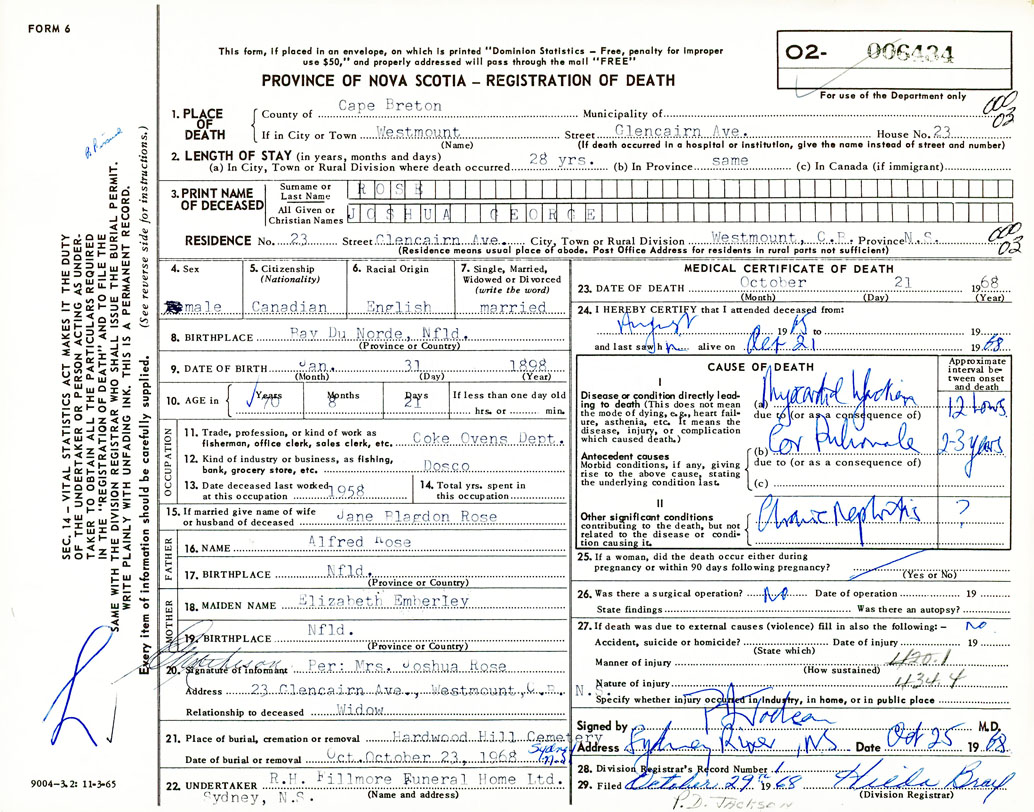 FORM 6
This form, if placed in an envelope, on which is printed "Dominion Statistics — Free, penalty for improper
use $50," and properly addressed will pass through the mail "FREE"
PROVINCE OF NOVA SCOTIA — REGISTRATION OF DEATH
O2- 006434
For use of the Department only
000
03
SEC. 14 — VITAL STATISTICS ACT MAKES IT THE DUTY
OF THE UNDERTAKER OR PERSON ACTING AS UNDER-
TAKER TO OBTAIN ALL THE PARTICULARS REQUIRED
IN THE "REGISTRATION OF DEATH" AND TO FILE THE
SAME WITH THE DIVISION REGISTRAR WHO SHALL ISSUE THE BURIAL PERMIT.
WRITE PLAINLY WITH UNFADING INK. THIS IS A PERMANENT RECORD.
Every item of information should be carefully supplied. (See reverse side for instructions.)
1. PLACE OF DEATH
County of Cape Breton Municipality of
If in City or Town Westmount Street Glencairn Ave. House No. 23
(Name) (If death occurred in a hospital or institution, give the name instead of street and number)
2. LENGTH OF STAY (in years, months and days)
(a) In City, Town or Rural Division where death occurred 28 yrs. (b) In Province same (c) In Canada (if immigrant)
3. PRINT NAME OF DECEASED
Surname or Last Name ROSE
All Given or Christian Names JOSHUA GEORGE
RESIDENCE No. 23 Street Glencairn Ave. City, Town or Rural Division Westmount, C.B. Province N.S.
(Residence means usual place of abode. Post Office Address for residents in rural parts not sufficient)
000
03
4. Sex male
5. Citizenship (Nationality) Canadian
6. Racial Origin English
7. Single, Married, Widowed or Divorced (write the word) married
8. BIRTHPLACE Bay Du Norde, Nfld.
(Province or Country)
9. DATE OF BIRTH Jan. 31 1898
(Month) (Day) (Year)
10. AGE in Years 70 Months 8 Days 21 If less than one day old hrs. or min.
OCCUPATION
11. Trade, profession, or kind of work as
fisherman, office clerk, sales clerk, etc. Coke Ovens Dept.
12. Kind of industry or business, as fishing,
bank, grocery store, etc. Dosco
13. Date deceased last worked
at this occupation 1958
14. Total yrs. spent in
this occupation
15. If married give name of wife
or husband of deceased Jane Blagdon Rose
FATHER
16. NAME Alfred Rose
17. BIRTHPLACE Nfld.
(Province or Country)
MOTHER
18. MAIDEN NAME Elizabeth Emberley
19. BIRTHPLACE Nfld.
(Province or Country)
20. Signature of informant Per: Mrs. Joshua Rose
Address 23 Glencairn Ave., Westmount, C.B., N.S.
Relationship to deceased Widow
21. Place of burial, cremation or removal Hardwood Hill Cemetery
Sydney N.S.
Date of burial or removal Oct. October 23, 1968
22. UNDERTAKER R.H. Fillmore Funeral Home Ltd.
Sydney, N.S. (Name and address)
MEDICAL CERTIFICATE OF DEATH
23. DATE OF DEATH October 21 1968
(Month) (Day) (Year)
24. I HEREBY CERTIFY that I attended deceased from:
August 19 65 to 19
and last saw h m alive on Oct 21 19 68
CAUSE OF DEATH
Approximate interval between onset and death
I
Disease or condition directly leading to death (This does not mean the mode of dying, e.g., heart failure, asthenia, etc. It means the disease, injury, or complication which caused death.)
(a) Myocardial Infarction 12 hours
due to (or as a consequence of)
Antecedent causes
Morbid conditions, if any, giving rise to the above cause, stating the underlying condition last.
(b) Cor Pulmonale 2-3 years
due to (or as a consequence of)
(c)
II
Other significant conditions
contributing to the death, but not related to the disease or condition causing it.
Chronic Nephritis ?
25. If a woman, did the death occur either during
pregnancy or within 90 days following pregnancy?
(Yes or No)
26. Was there a surgical operation? No Date of operation 19
State findings Was there an autopsy?
27. If death was due to external causes (violence) fill in also the following:— No
Accident, suicide or homicide? Date of injury 19
(State which)
Manner of injury 420.1
(How sustained)
Nature of injury 434.4
Specify whether injury occurred in Industry, in home, or in public place
Signed by M.D.
Address Sydney River, NS Date Oct 25 19 68
28. Division Registrar's Record Number
29. Filed October 29th 1968
(Division Registrar)
P.D. Jackson
9004-3.2: 11-3-65